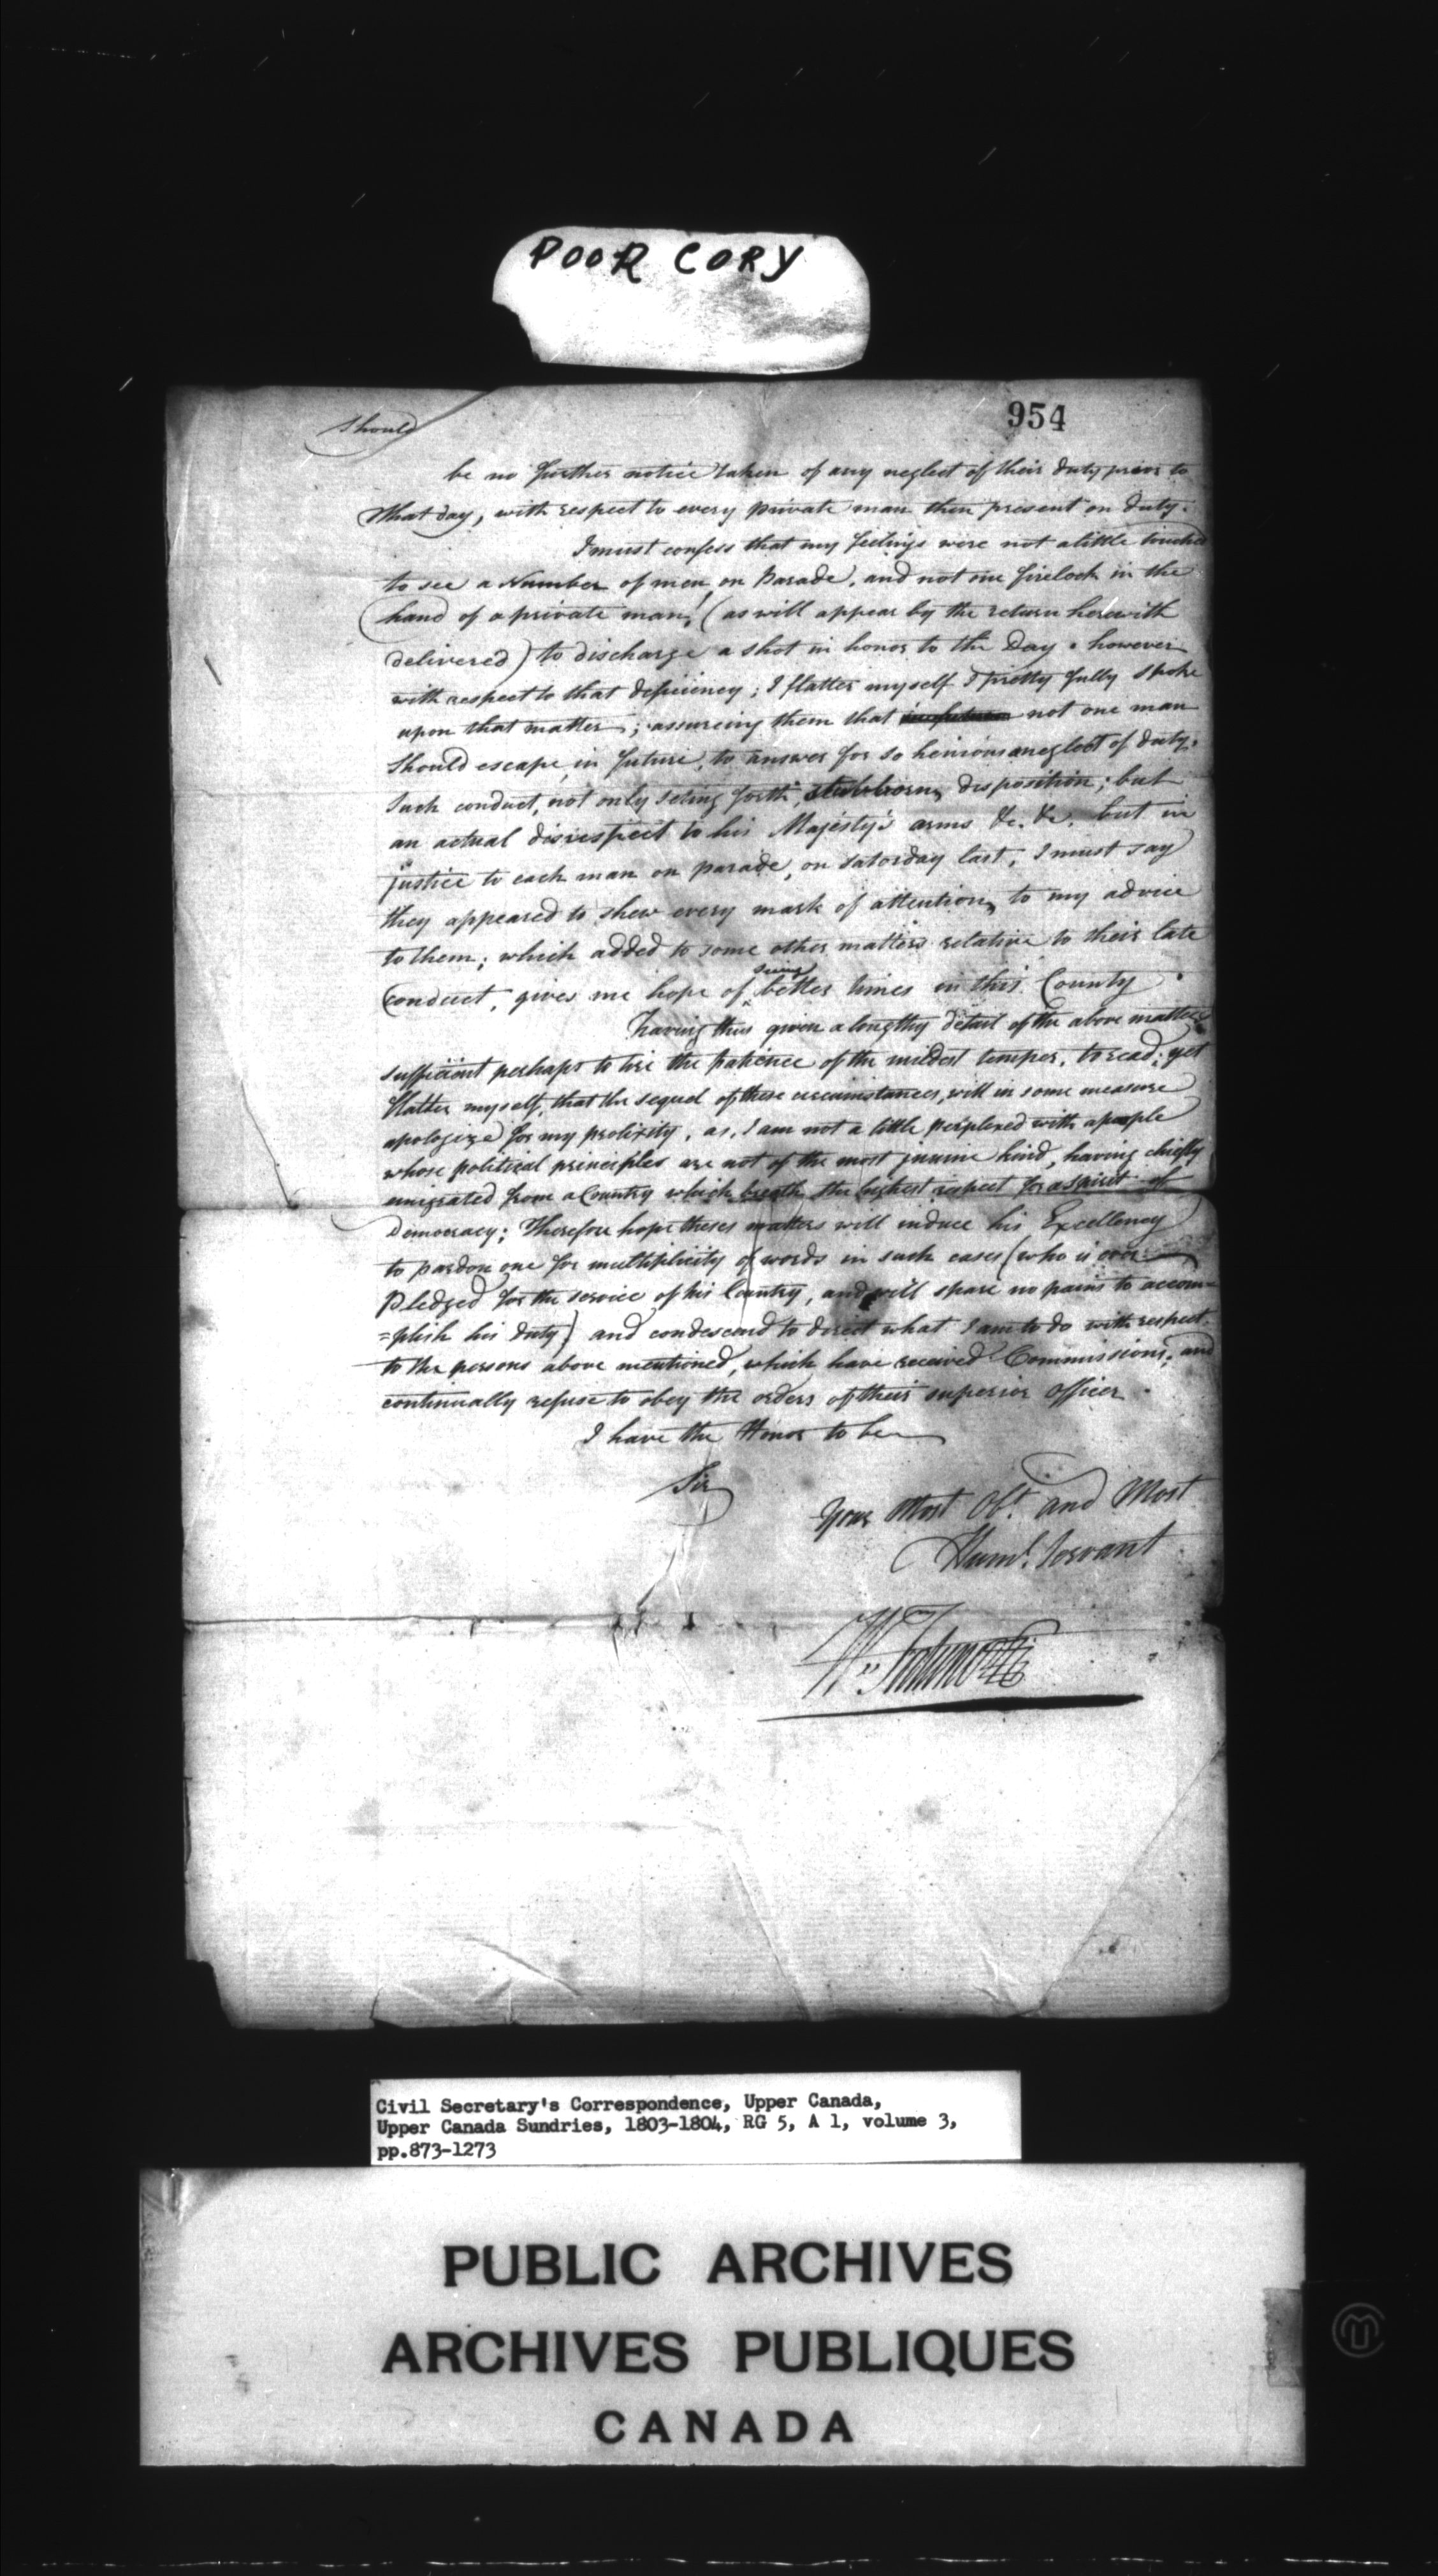 POOR COPY
954
should
be no further notice taken of any neglect of their duty prior to
that day, with respect to every private man then present on duty.
I must confess that my feelings were not a little touched
to see a Number of men on Parade, and not one firelock in the
hand of a private man, (as will appear by the return herewith
delivered) to discharge a shot in honor to the Day. however
with respect to that deficiency; I flatter myself I pretty fully spoke
upon that matter; assureing them that not one man
should escape in future, to answer for so heinious a neglect of duty.
Such conduct, not only seting forth, stubborn, disposition; but
an actual disrespect to his Majesty's arms &c. &c. but in
justice to each man on parade, on Saturday last, I must say
they appeared to shew every mark of attention, to my advice
to them; which added to some other matters relative to their late
Conduct, gives me hope of seeing better times in this County.
having thus given a lengthy detail of the above matters
sufficient perhaps to tire the patience of the mildest temper, to read; yet
flatter myself, that the sequel of these circumstances, will in some measure
apologize for my prolixity, as, I am not a little perplexed with a people
whose political principles are not of the most kind, having chiefly
emigrated from a Country which breath the highest respect for a spirit of
Democracy; Therefore hope theses matters will induce his Excellency
to pardon one for multiplicity of words in such cases (who is ever
Pledged for the service of his Country, and will spare no pains to accom=
=plish his duty) and condescend to direct what I am to do with respect
to the persons above mentioned, which have received Commissions, and
continually refuse to obey the orders of their superior officer.
I have the Honor to be
Sir
Your Most Obt. and Most
Huml. Servant
Civil Secretary's Correspondence, Upper Canada,
Upper Canada Sundries, 1803-1804, RG 5, A 1, volume 3,
pp.873-1273
PUBLIC ARCHIVES
ARCHIVES PUBLIQUES
CANADA